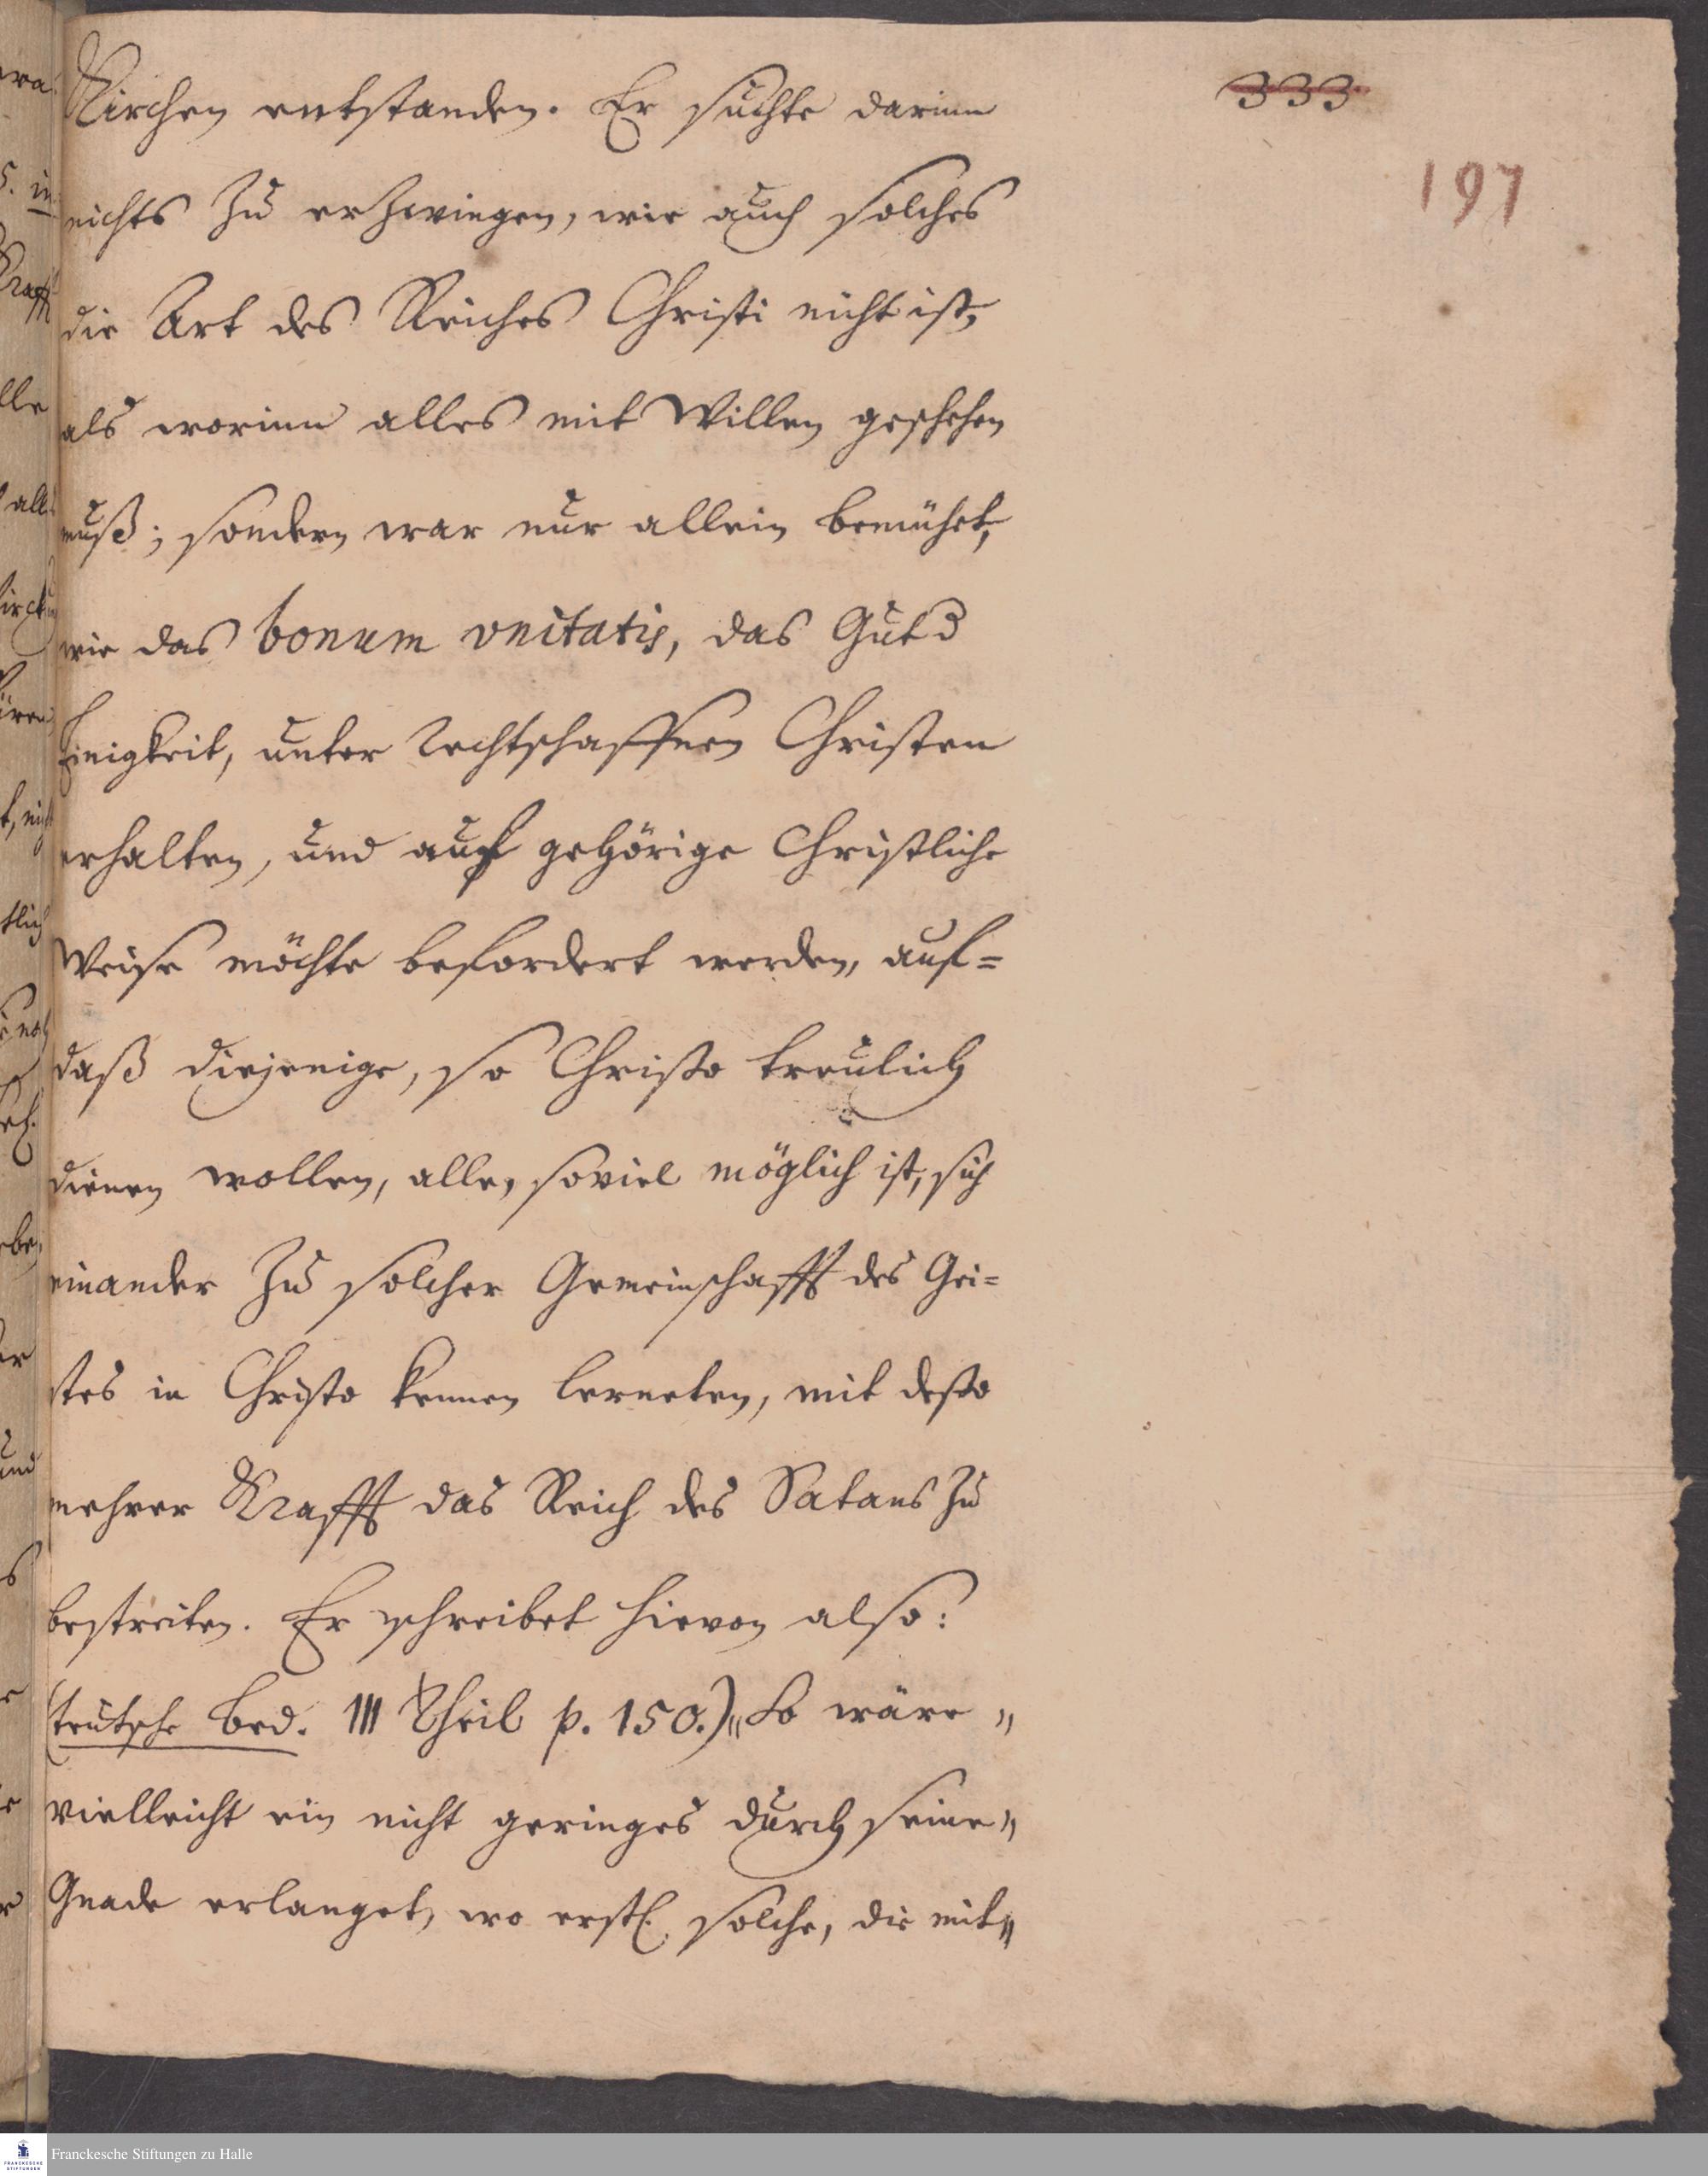 333.
197
Kirchen entstanden. Er suchte darinn
nichts zu erzwingen, wie auch solches
die Art des Reiches Christi nicht ist,
als worinn alles mit Willen geschehen
muß; sondern war nur allein bemühet,
wie das bonum vnitatis, das Gut d
Einigkeit, unter rechtschaffnen Christen
erhalten, und auf gehörige Christliche
Weise möchte befordert werden, auf=
daß diejenige, so Christo treulich
dienen wollen, alle, soviel möglich ist, sich
einander zu solcher Gemeinschafft des Gei=
stes in Christo kennen lerneten, mit desto
mehrer Krafft das Reich des Satans zu
bestreiten. Er schreibet hievon also:
(teutsche Bed. III Theil p. 150.) „So wäre „
vielleicht ein nicht geringes durch seine „
Gnade erlanget, wo erstl. solche, die mit „
Franckesche Stiftungen zu Halle